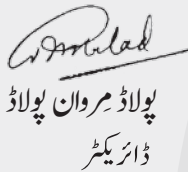 پولاڈ مِروان پولاڈ
ڈائریکٹر